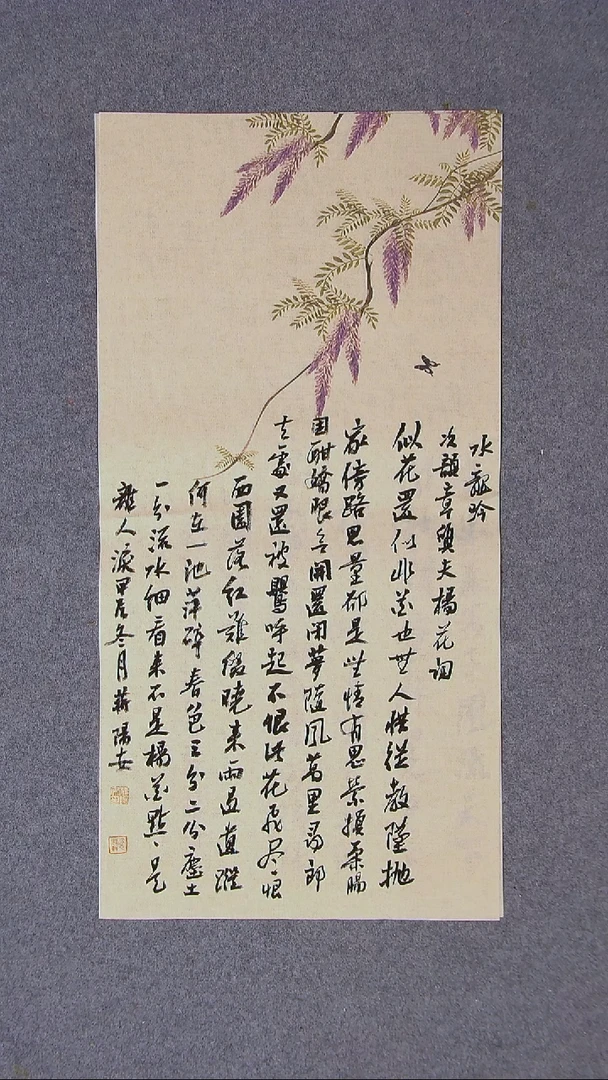 水龍吟
次韻章質夫楊花詞
似花還似非花也無人惜從教墜拋
家傍路思量却是無情有思縈損柔腸
困酣嬌眼欲開還閉夢隨風萬里尋郎
去處又還被鶯呼起不恨此花飛尽恨
西園落紅難綴曉來雨過遺蹤
何在一池萍碎春色三分二分塵土
一分流水細看來不是楊花點、是
離人淚甲辰冬月蔣陽安